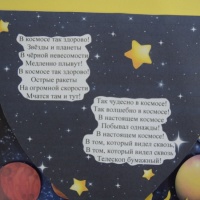 В космосе так здорово!
Звёзды и планеты
В чёрной невесомости
Медленно плывут!
В космосе так здорово!
Острые ракеты
На огромной скорости
Мчатся там и тут!
Так чудесно в космосе!
Так волшебно в космосе!
В настоящем космосе
Побывал однажды!
В настоящем космосе!
В том, который видел сквозь,
В том, который видел сквозь
Телескоп бумажный!